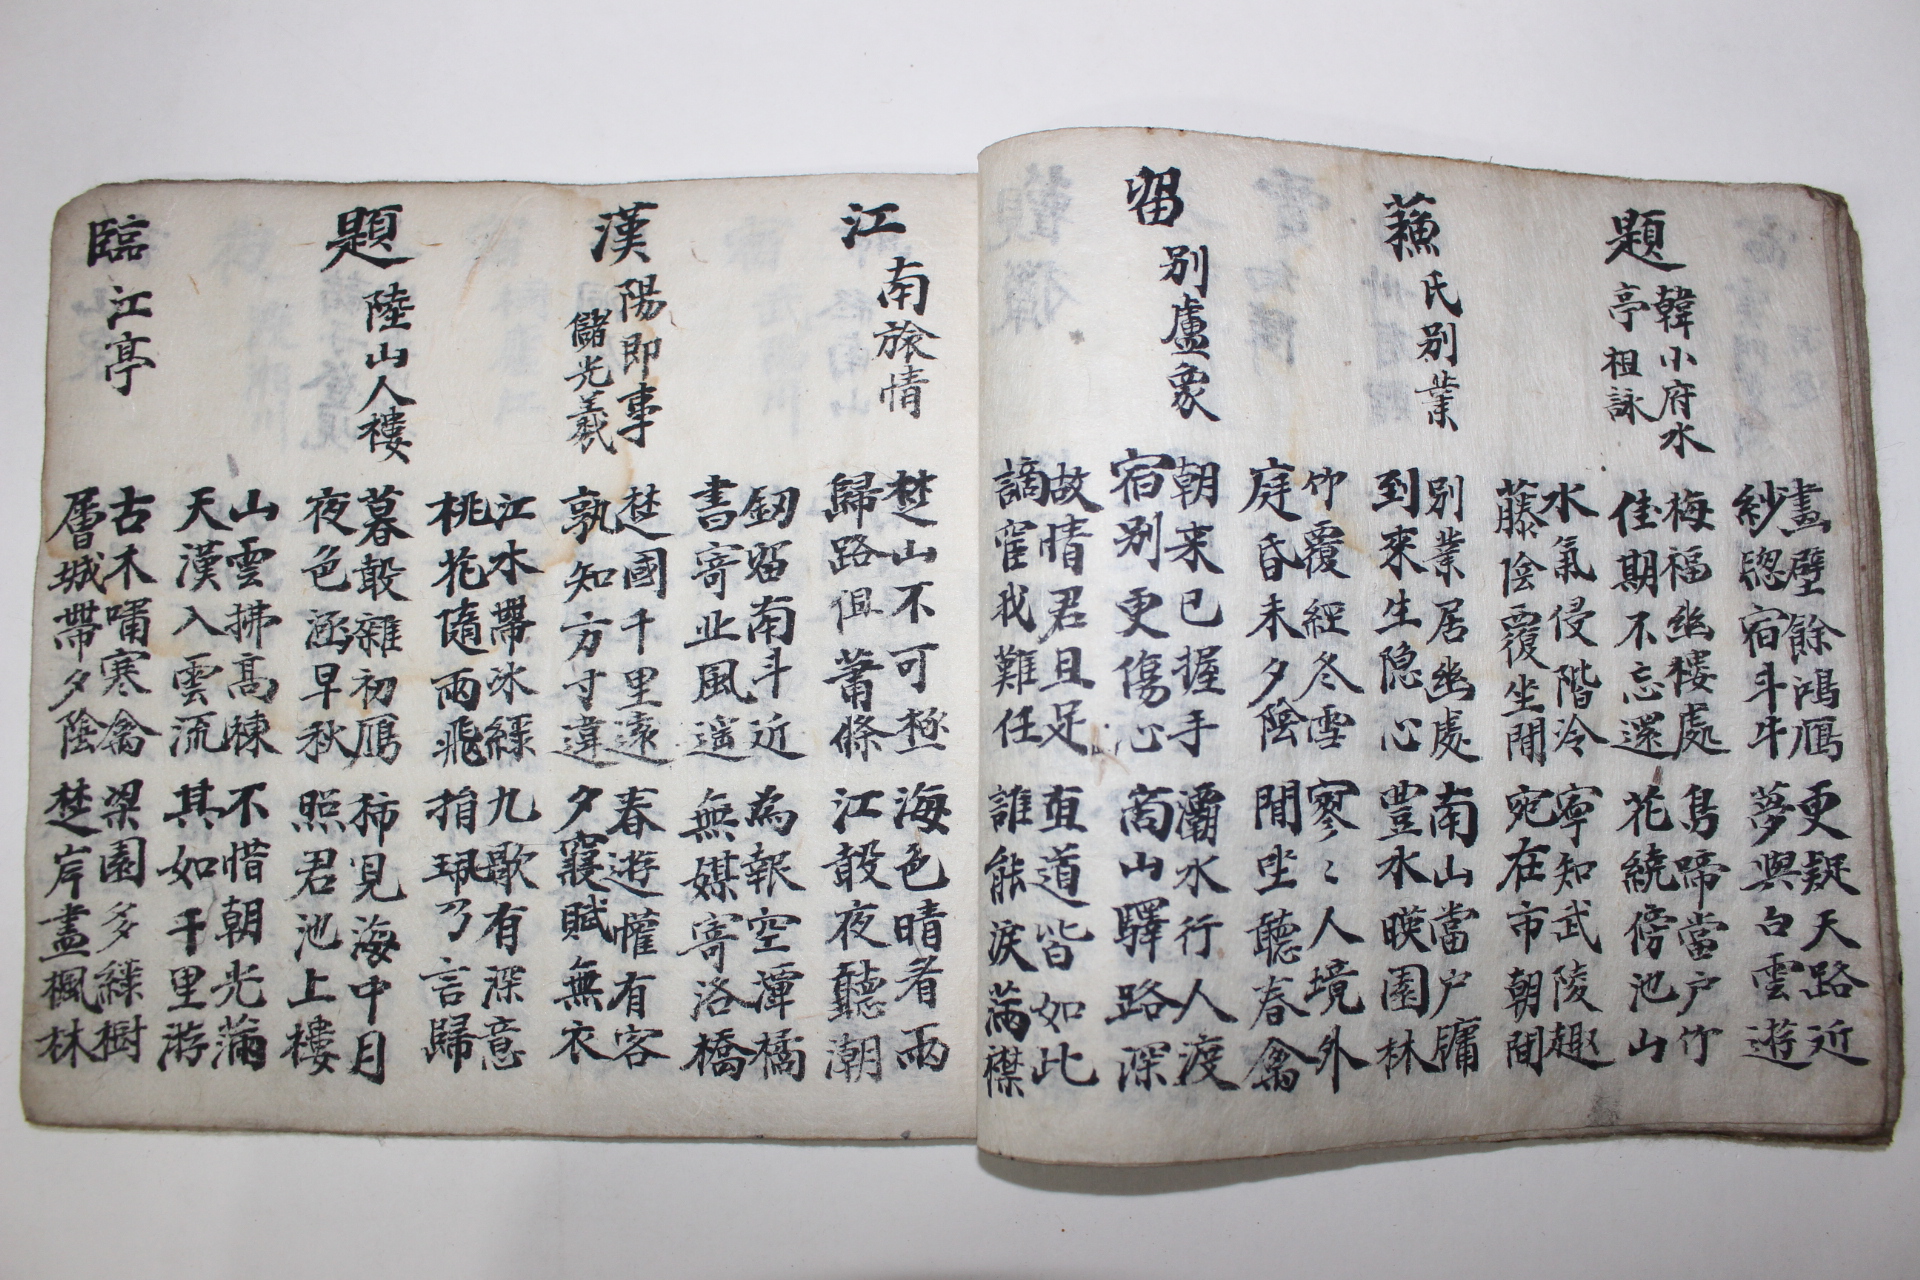 畵壁餘鴻鴈
紗窻宿斗牛
更疑天路近
夢與白雲遊
題韓小府水
亭 祖詠
梅福幽樓處
佳期不忘還
鳥啼當戶竹
花繞傍池山
水氣侵階冷
藤陰覆坐閒
寧知武陵趣
宛在市朝間
蘓氏別業
別業居幽處
到來生隐心
南山當戶牖
豊水暎園林
竹覆經冬雪
庭昏未夕陰
寥〻人境外
閒坐聽春禽
留別盧象
朝来已握手
宿別更傷心
灞水行人渡
商山驛路深
故情君且足
謫宦我難任
直道皆如此
誰能淚滿襟
江南旅情
楚山不可極
歸路但蕭條
海色晴看雨
江聲夜聽潮
釼留南斗近
書寄北風遥
為報空潭橘
無媒寄洛橋
漢陽即事
儲光羲
楚國千里遠
孰知方寸違
春遊懽有客
夕寢賦無衣
江水帶冰綠
桃花隨雨飛
九歌有深意
捐珮乃言歸
題陸山人樓
暮聲雜初鴈
夜色涵早秋
稍見海中月
照君池上樓
山雲拂高棟
天漢入雲流
不惜朝光滿
其如千里游
臨江亭
古木嘯寒禽
層城帶夕陰
梁園多綠樹
楚岸盡楓林